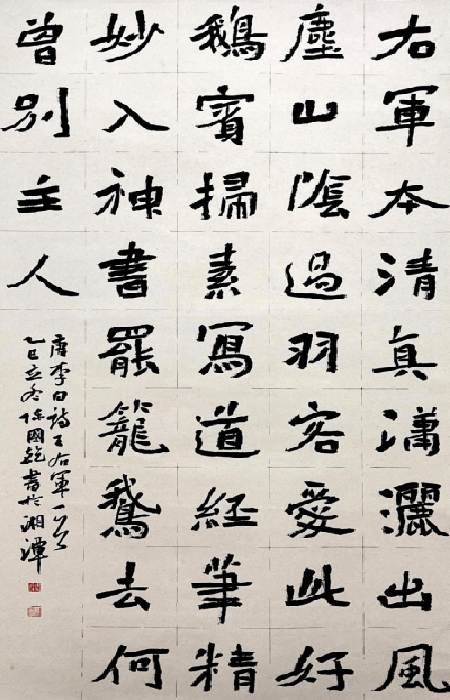 右軍本清真瀟灑出風
塵山陰過羽客愛此好
鵝賓掃素寫道經筆精
妙入神書罷籠鵝去何
曾別主人
唐李白詩王右軍一首
乙巳立冬陈國 書於湘潭